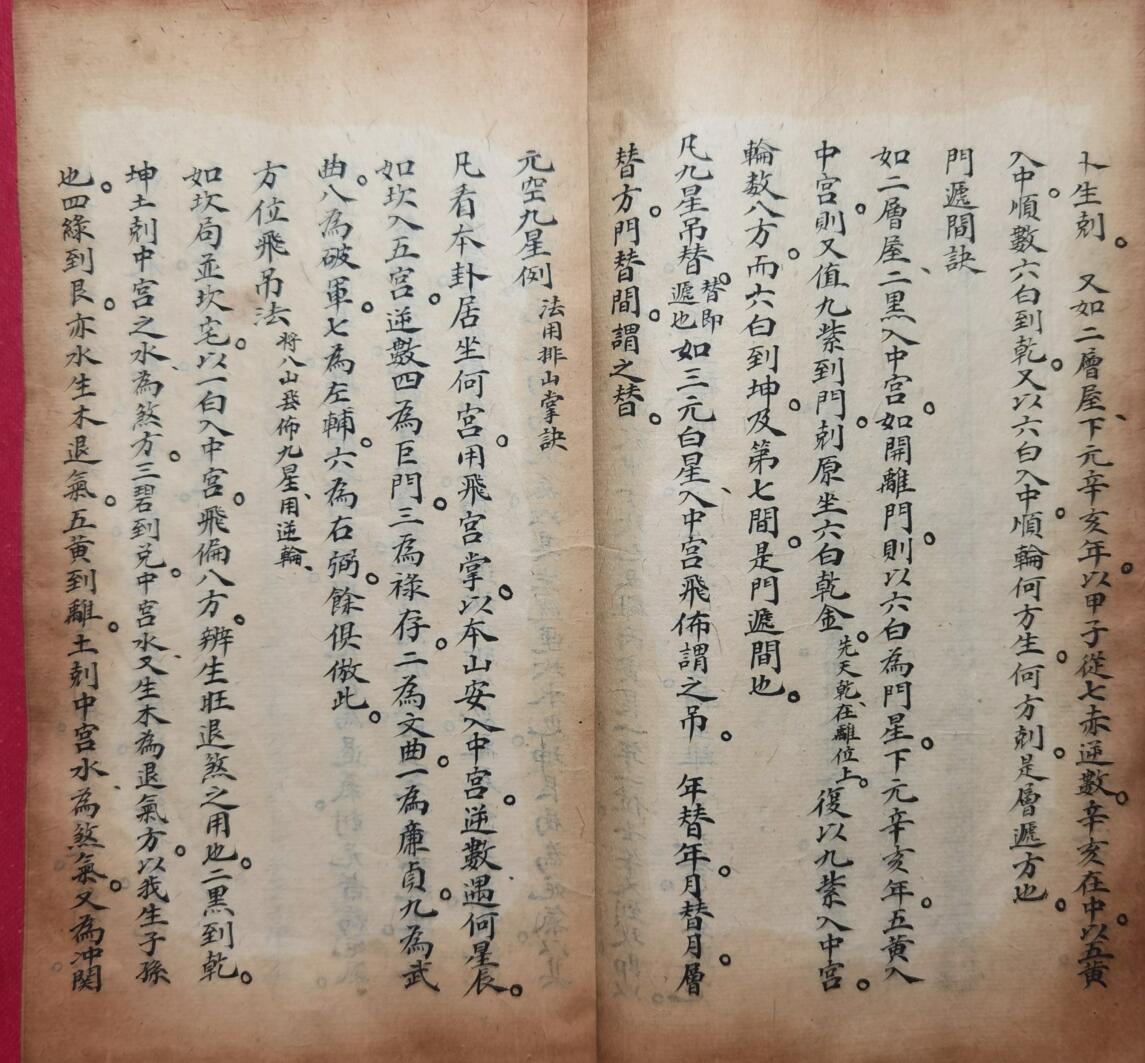 卜生剋　又如二層屋、下元辛亥年。以甲子從七赤逆數。辛亥在中。以五黄
入中。順數六白到乾。又以六白入中。順輪何方生。何方剋。是層遞方也。
門遞間訣
如二層屋、二黑入中宮。如開離門。則以六白為門星。下元辛亥年。五黄入
中宮。則又值九紫到門。剋原坐六白乾金。先天乾、在離位上。復以九紫入中宮。
輪数八方。而六白到坤。及第七間。是門遞間也。
凡九星吊替。替即遞也如三元白星、入中宮飛佈謂之吊。　年替年。月替月。層
替方。門替間。謂之替。
元空九星例　法用排山掌訣
凡看本卦居坐何宮。用飛宮掌。以本山安入中宮。逆數遇何星辰。
如坎入五宮。逆數四為巨門。三為祿存。二為文曲。一為廉貞。九為武
曲。八為破軍。七為左輔。六為右弼。餘俱倣此。
方位飛吊法　将八山發佈九星、用逆輪、
如坎局並坎宅。以一白入中宮。飛偏八方。辨生旺退煞之用也。二黑到乾。
坤土剋中宮之水、為煞方。三碧到兑。中宮水、又生木為退氣方。以我生子孫
也。四綠到艮。亦水生木退氣。五黄到離。土剋中宮水、為煞氣。又為冲関